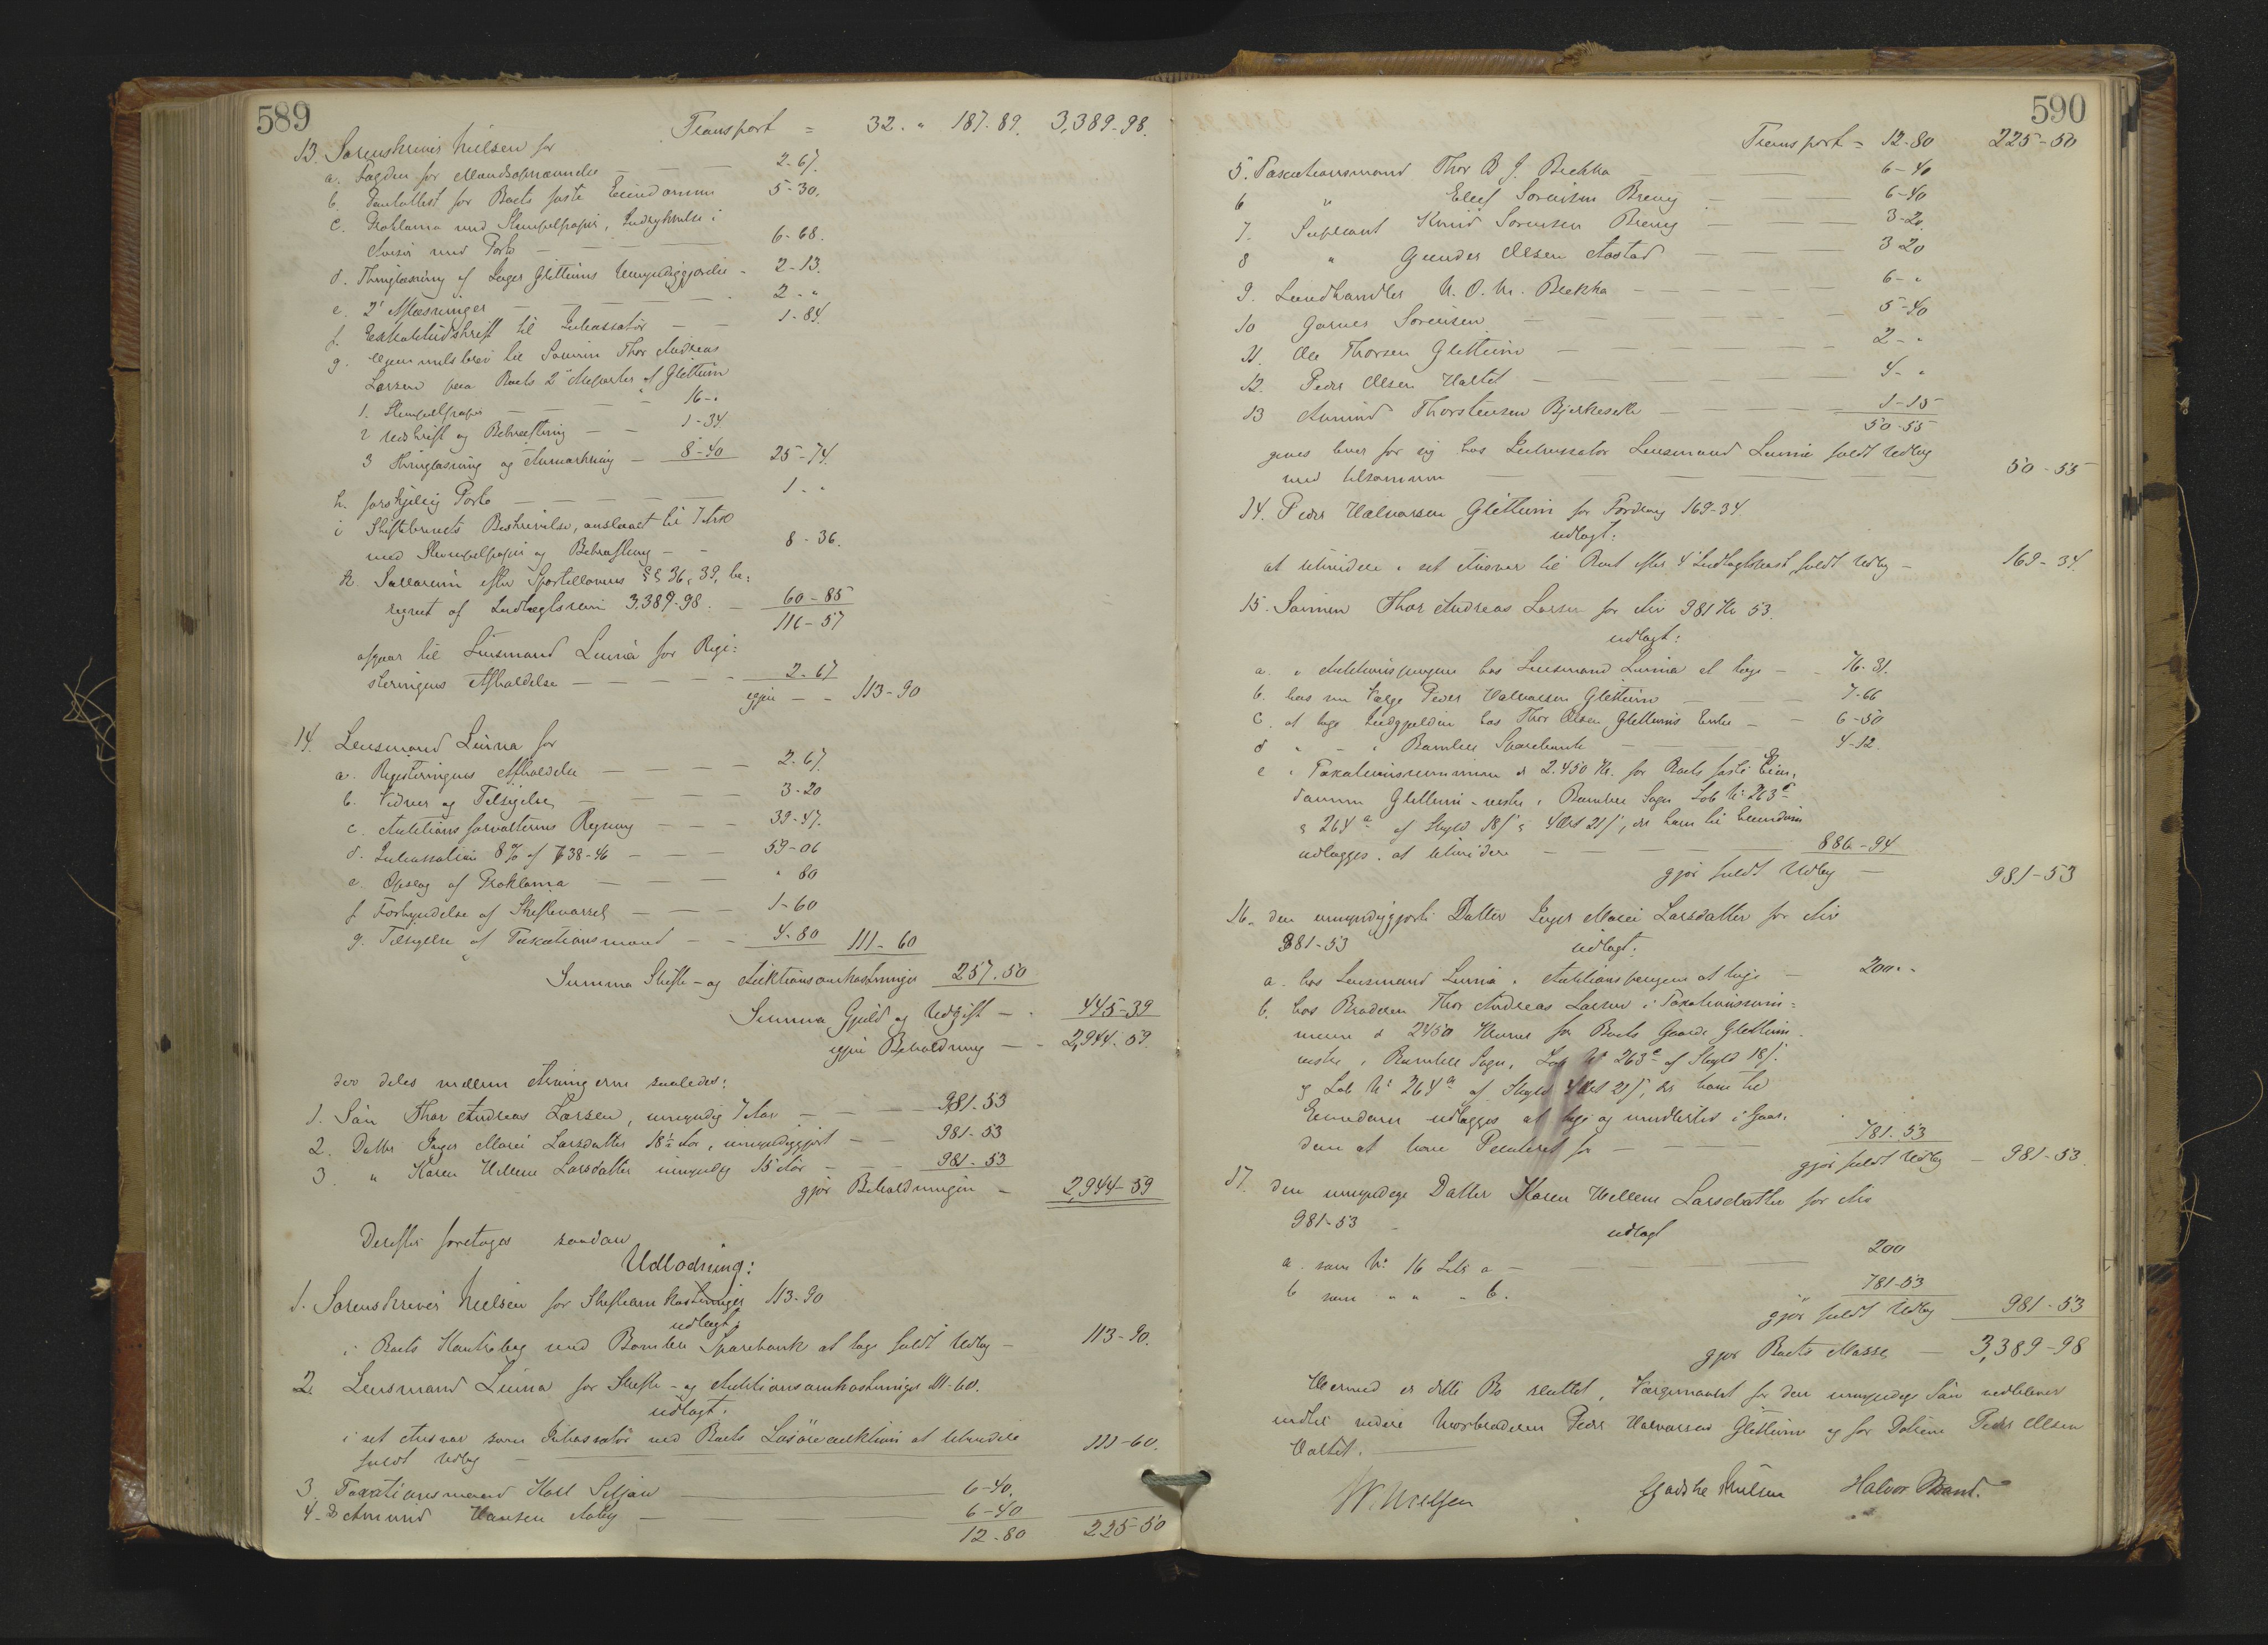 589
Transport = 32. " 187-89. 3,389-98.
13. Sorenskriver Nielsen for
a. Fogden for Mandsopnævnelse — 2-67.
b. Panteattest for Boets faste Eiendomme 5-30.
c. Proklama med Stempelpapir, Indrykkelse i
Aviser med Porto — 6-68.
d. Thinglæsning af Inger Glittums Umyndiggjørelse - 2-13.
e. 2 Aflæsninger — 2 - "
f. Extraktudskrift til Inkassator — 1-84.
g. Hjemmelsbrev til Sønnen Thor Andreas
Larsen paa Boets 2de Parter af Glittum
1. Stempelpapir — 16 - "
2 Udskrift og Bekræftning — 1-34
3 Thinglæsning og Anmærkning — 8-40 25-74.
h. forskjellig Porto — 1 - "
i Skiftebrevets Beskrivelse, anslaaet til 7 Ark
med Stempelpapir og Bekræftning — 8-36.
k. Sallarium efter Sportellovens §§ 36, 39, be:
regnet af Indtægtssum 3,389-98. — 60-85
116-57
afgaar til Lensmand Lunna for Regi:
streringens Afholdelse — 2-67
igjen — 113-90
14. Lensmand Lunna for
a. Registreringens Afholdelse — 2-67.
b. Vidner og Tilsigelse — 3-20
c. Auktionsforvalterens Regning — 39-47.
d. Inkassation 8% af 738-46 — 59-06
e. Opslag af Proklama — " 80
f Forkyndelse af Skiftevarsel — 1-60
g. Tilsigelse af Taxationsmænd — 4-80 111-60
Summa Skifte- og Auktionsomkostninger 257.50
Summa Gjeld og Udgift — 445-39
igjen Beholdning — 2,944-59.
der deles mellem Arvingerne saaledes:
1. Søn Thor Andreas Larsen, umyndig 7 Aar — 981-53
2. Datter Inger Marie Larsdatter 18½ Aar, umyndiggjort — 981-53
3. " Karen Hellene Larsdatter umyndig 15 Aar — 981-53
gjør Beholdningen — 2,944-59
Derefter foretoges saadan
Udlodning:
1. Sorenskriver Nielsen for Skifteomkostninger 113-90
udlagt:
i Boets Kontrabog med Bamble Sparebank at tage fuldt Udlæg — 113-90.
2. Lensmand Lunna for Skifte- og Auktionsomkostninger 111-60.
udlagt:
i set Ansvar som Inkassator ved Boets Løsøreauktion at likvidere
fuldt Udlæg — 111-60.
3. Taxationsmand Karl Siljan — 6-40.
4. Do Amund Hansen Aaby — 6-40
12-80 225-50
590
Transport = 12-80 225-50
5. Taxationsmand Thor B J. Bækka — 6-40
6 " Elef Sørensen Breng — 6-40
7. Supleant Knud Sørensen Breng — 3-20
8 " Gunder Olsen Aastad — 3 20
9. Landhandler N. O. N. Bækka — 6 - "
10 Garver Sørensen — 5-40
11. Ole Thorsen Glittum — 2 - "
12. Peder Olsen Valtet — 4 - "
13 Amund Thorstensen Bjerkeseth — 1-15
50-55
gives hver for sig hos Inkassator Lensmand Lunna fuldt Udlæg
med tilsammen — 50-55
14. Peder Halvorsen Glittum for Fordring 169-34
udlagt:
at likvidere i set Ansvar til Boet efter 4 Indtægtspost fuldt Udlæg — 169-34.
15. Sønnen Thor Andreas Larsen for Arv 981 Kr 53.
udlagt:
a. i Auktionspengene hos Lensmand Lunna at tage — 76-31.
b. hos sin Værge Peder Halvorsen Glittum — 7-66
c. at tage Indgjelden hos Thor Olsen Glittums Enke — 6-50
d " - i Bamble Sparebank — 4-12.
e i Taxationssummen af 2.450 Kr. for Boets faste Eien,
domme Glittum-vestre i Bamble Sogn Løb No 263c
& 264a af Skyld 18 f & 4 Ort 21 f, der ham til Eiendom
udlægges. at likvidere — 886-94
gjør fuldt Udlæg — 981-53
16. den umyndiggjorte Datter Inger Marie Larsdatter for Arv
981-53 udlagt:
a. hos Lensmand Lunna i Auktionspengene at tage — 200. -
b. hos Broderen Thor Andreas Larsen i Taxationssum=
men af 2450 Kroner for Boets Gaard Glittum
vestre i Bamble Sogn, Løb No 263c af Skyld 18 f
& Løb No 264a af Skyld 4 Ort 21 f, der ham til
Eiendom udlægges at tage og imidlertid i Gaar.
den at have Panteret for — 781.53
gjør fuldt Udlæg — 981-53.
17. den umyndige Datter Karen Hellene Larsdatter for Arv
981-53 udlagt
a. som No 16 Litr a — 200
b som " " " b. 781-53
gjør fuldt Udlæg 981-53
gjør Boets Masse — 3,389-98
Hermed er dette Bo sluttet, Værgemaalet for den umyndige Søn vedbliver
indtil videre Morbroderen Peder Halvorsen Glittum og for Døttrene Peder Olsen
Valtet. —
W. Nielsen Halvor Brand.